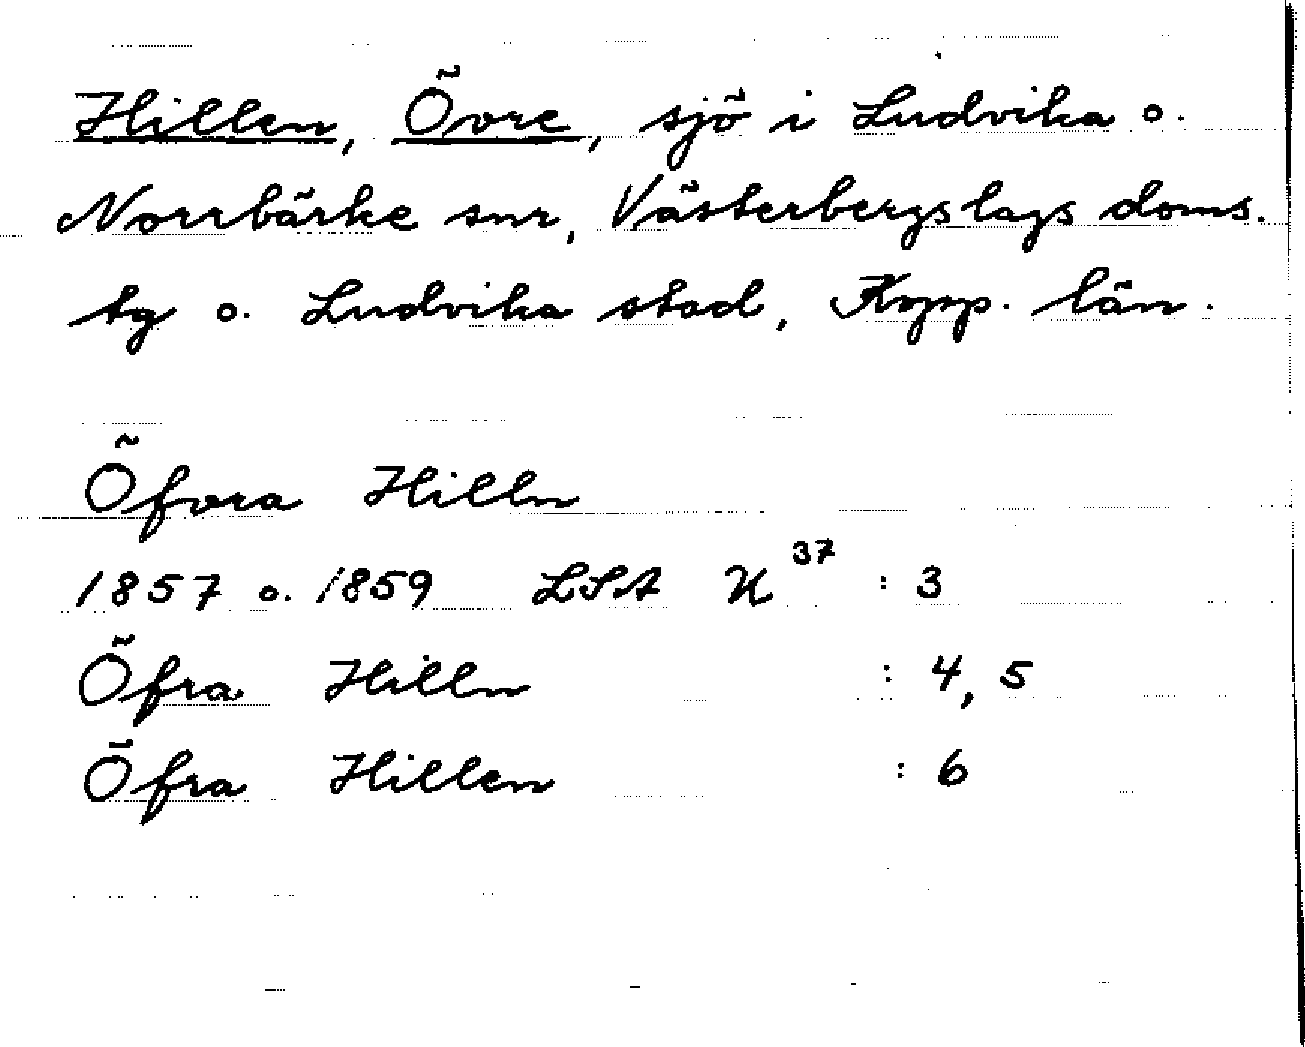 Hillen, Övre, sjö i Ludvika o.
Norrbärke snr, Västerbergslags doms.
tg o. Ludvika stad, Kopp. län.
Öfvra Hilln
1857 o. 1859 LSA U³⁷ : 3
Öfra Hilln : 4, 5
Öfra Hillen : 6